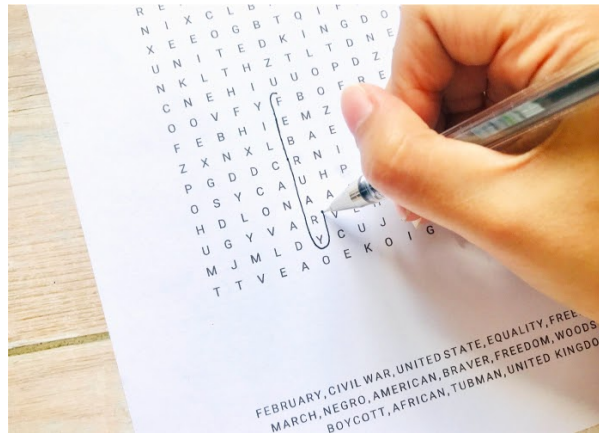 R E
N I X C L B
X E E O G B T Q I F
U N I T E D K I N G D O
N K L T H Z T L T D N E
C N E H I U U O P D Z
O O V F Y F B O F R E
F E B H I E M Z
Z X N X L B A E
P G D D C R N I
O S Y C A U H P
H D L O N A A
U G Y V A R V E
M J M L D Y C U J
T T V E A O E K O I G
FEBRUARY, CIVIL WAR, UNITED STATE, EQUALITY, FREE
MARCH, NEGRO, AMERICAN, BRAVER, FREEDOM, WOODS
BOYCOTT, AFRICAN, TUBMAN, UNITED KINGDO